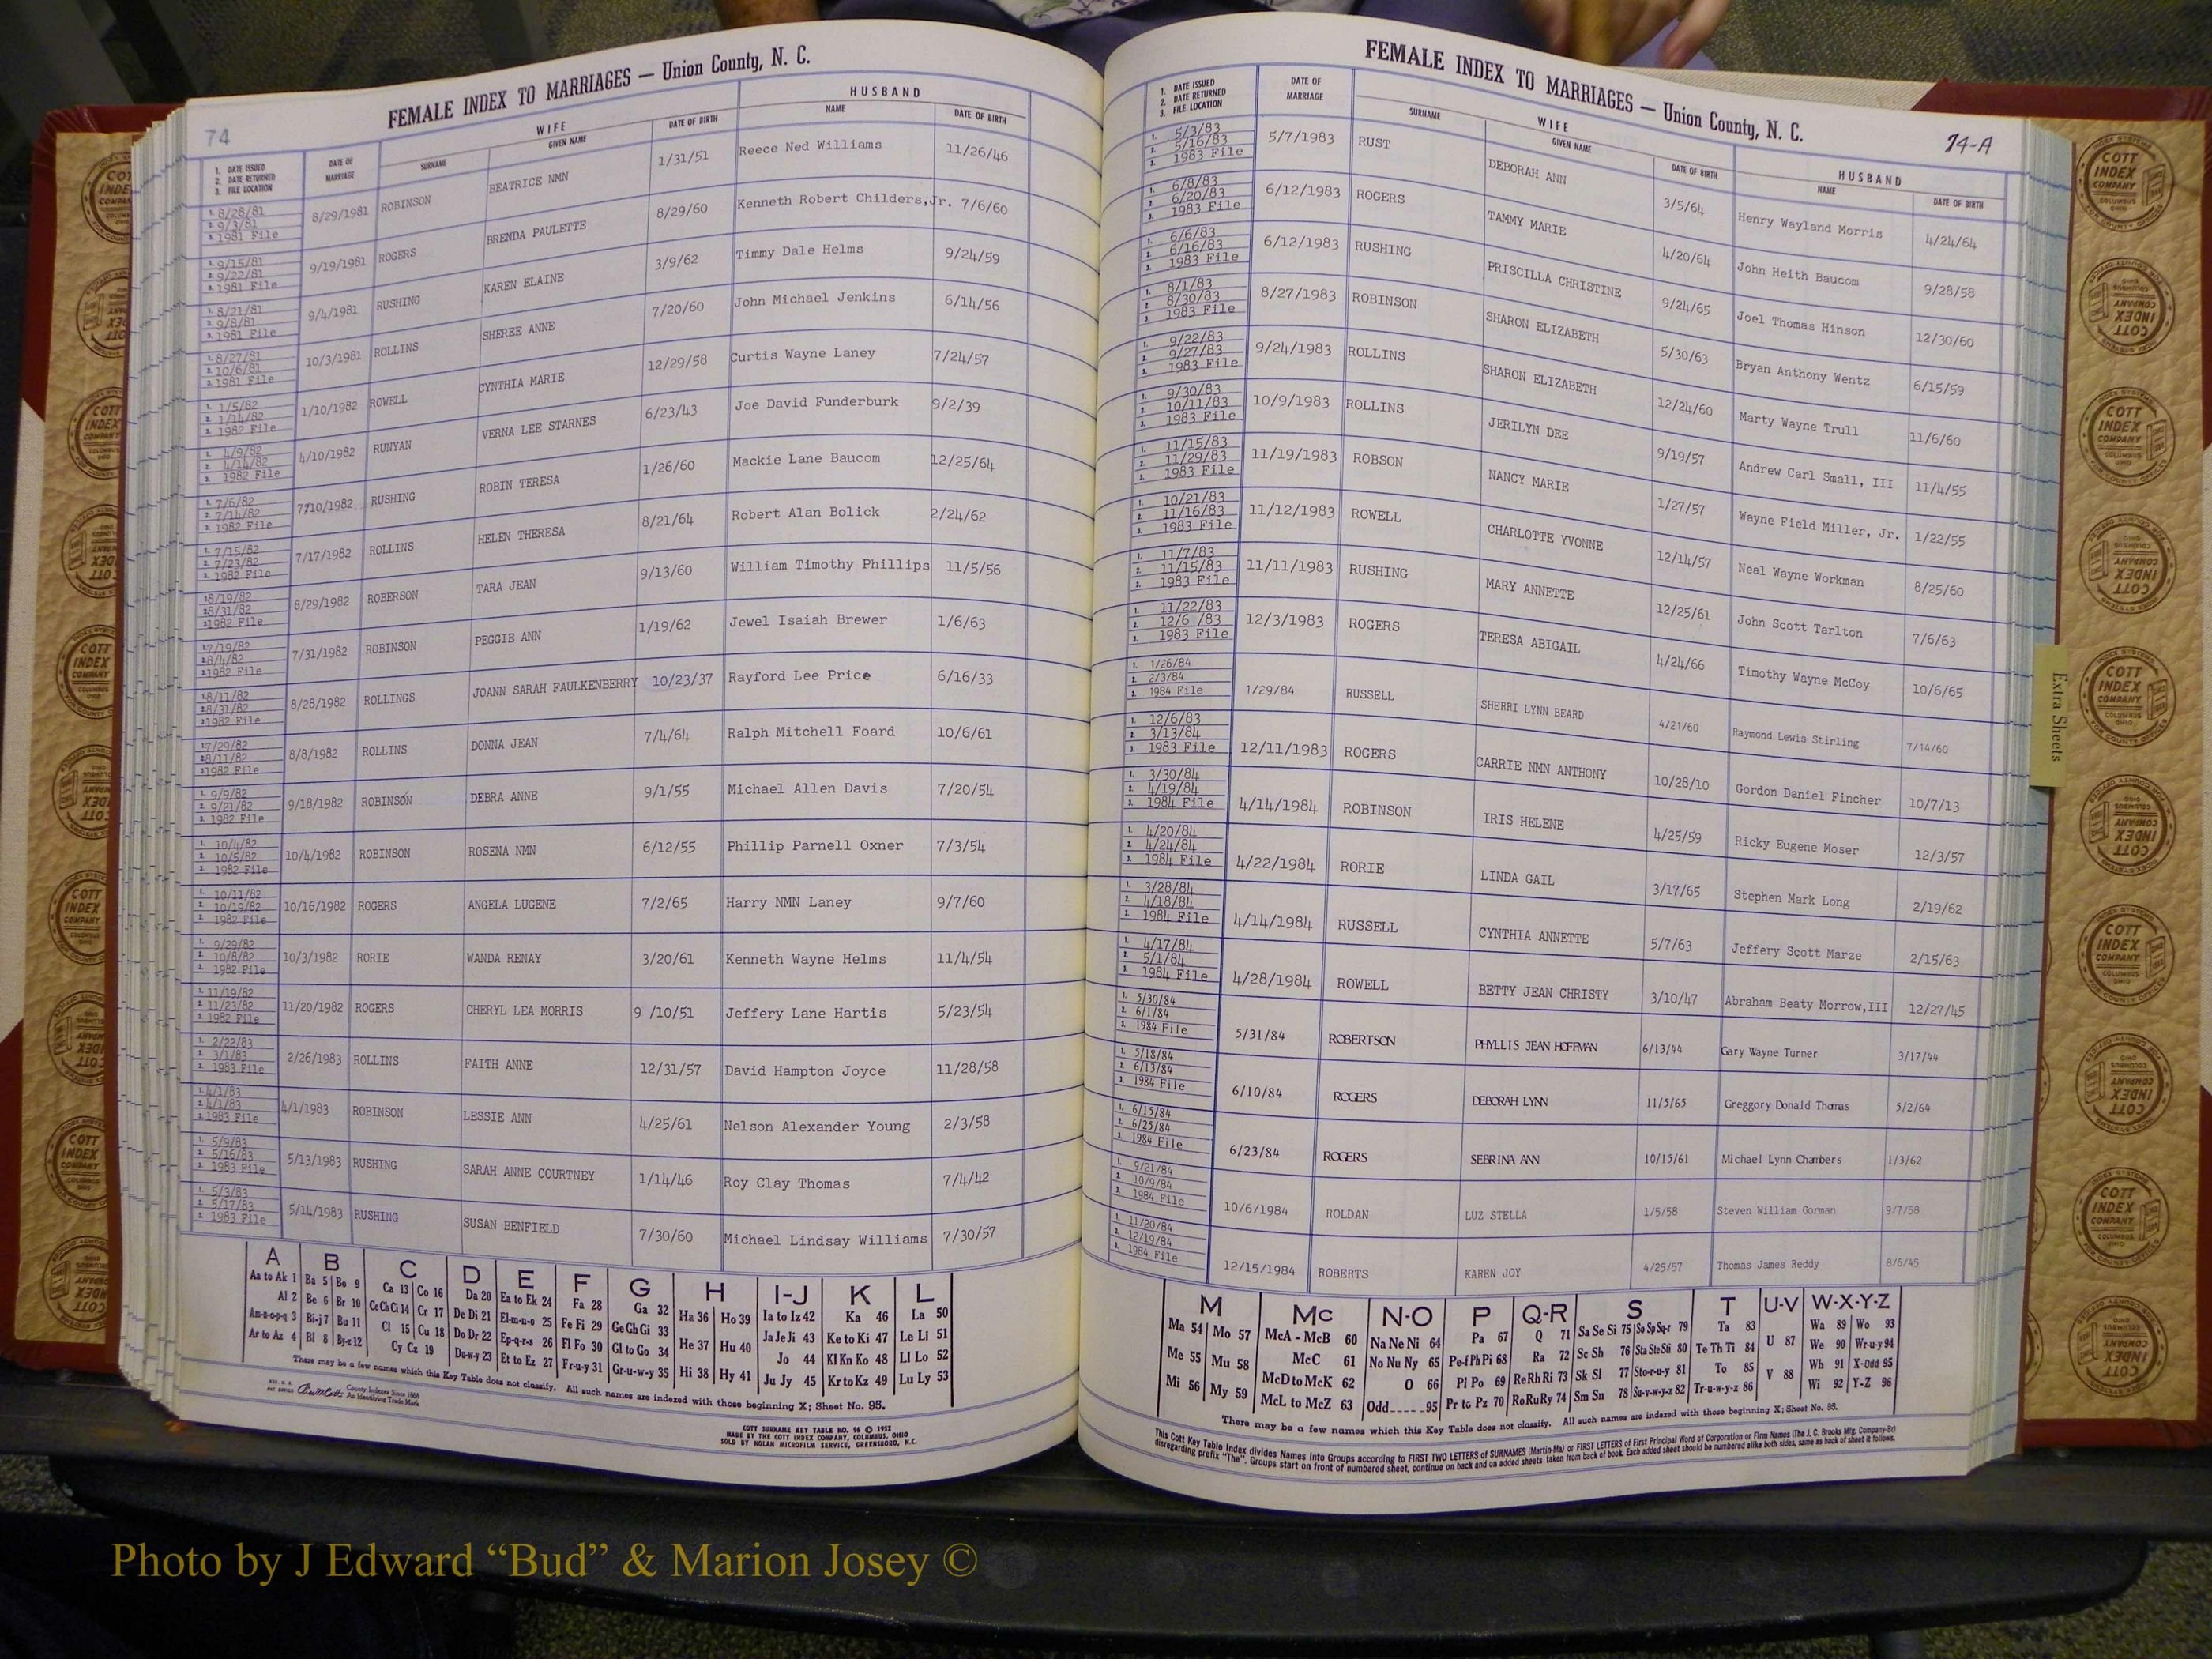 FEMALE INDEX TO MARRIAGES — Union County, N. C.
74
1. DATE ISSUED 2. DATE RETURNED 3. FILE LOCATION DATE OF MARRIAGE WIFE SURNAME GIVEN NAME DATE OF BIRTH HUSBAND NAME DATE OF BIRTH
1. 8/28/81 2. 9/3/81 3. 1981 File 8/29/1981 ROBINSON BEATRICE NMN 1/31/51 Reece Ned Williams 11/26/46
1. 9/15/81 2. 9/22/81 3. 1981 File 9/19/1981 ROGERS BRENDA PAULETTE 8/29/60 Kenneth Robert Childers,Jr. 7/6/60
1. 8/21/81 2. 9/8/81 3. 1981 File 9/4/1981 RUSHING KAREN ELAINE 3/9/62 Timmy Dale Helms 9/24/59
1. 8/27/81 2. 10/6/81 3. 1981 File 10/3/1981 ROLLINS SHEREE ANNE 7/20/60 John Michael Jenkins 6/14/56
1. 1/5/82 2. 1/14/82 3. 1982 File 1/10/1982 ROWELL CYNTHIA MARIE 12/29/58 Curtis Wayne Laney 7/24/57
1. 4/9/82 2. 4/14/82 3. 1982 File 4/10/1982 RUNYAN VERNA LEE STARNES 6/23/43 Joe David Funderburk 9/2/39
1. 7/6/82 2. 7/14/82 3. 1982 File 7/10/1982 RUSHING ROBIN TERESA 1/26/60 Mackie Lane Baucom 12/25/64
1. 7/15/82 2. 7/23/82 3. 1982 File 7/17/1982 ROLLINS HELEN THERESA 8/21/64 Robert Alan Bolick 2/24/62
1. 8/19/82 2. 8/31/82 3. 1982 File 8/29/1982 ROBERSON TARA JEAN 9/13/60 William Timothy Phillips 11/5/56
1. 7/19/82 2. 8/4/82 3. 1982 File 7/31/1982 ROBINSON PEGGIE ANN 1/19/62 Jewel Isaiah Brewer 1/6/63
1. 8/11/82 2. 8/31/82 3. 1982 File 8/28/1982 ROLLINGS JOANN SARAH FAULKENBERRY 10/23/37 Rayford Lee Price 6/16/33
1. 7/29/82 2. 8/11/82 3. 1982 File 8/8/1982 ROLLINS DONNA JEAN 7/4/64 Ralph Mitchell Foard 10/6/61
1. 9/9/82 2. 9/21/82 3. 1982 File 9/18/1982 ROBINSON DEBRA ANNE 9/1/55 Michael Allen Davis 7/20/54
1. 10/4/82 2. 10/5/82 3. 1982 File 10/4/1982 ROBINSON ROSENA NMN 6/12/55 Phillip Parnell Oxner 7/3/54
1. 10/11/82 2. 10/19/82 3. 1982 File 10/16/1982 ROGERS ANGELA LUGENE 7/2/65 Harry NMN Laney 9/7/60
1. 9/29/82 2. 10/8/82 3. 1982 File 10/3/1982 RORIE WANDA RENAY 3/20/61 Kenneth Wayne Helms 11/4/54
1. 11/19/82 2. 11/23/82 3. 1982 File 11/20/1982 ROGERS CHERYL LEA MORRIS 9 /10/51 Jeffery Lane Hartis 5/23/54
1. 2/22/83 2. 3/1/83 3. 1983 File 2/26/1983 ROLLINS FAITH ANNE 12/31/57 David Hampton Joyce 11/28/58
1. 4/1/83 2. 4/1/83 3. 1983 File 4/1/1983 ROBINSON LESSIE ANN 4/25/61 Nelson Alexander Young 2/3/58
1. 5/9/83 2. 5/16/83 3. 1983 File 5/13/1983 RUSHING SARAH ANNE COURTNEY 1/14/46 Roy Clay Thomas 7/4/42
1. 5/3/83 2. 5/17/83 3. 1983 File 5/14/1983 RUSHING SUSAN BENFIELD 7/30/60 Michael Lindsay Williams 7/30/57
A B C D E F G H I-J K L
Aa to Ak 1 Ba 5 Bo 9 Ca 13 Co 16 Da 20 Ea to Ek 24 Fa 28 Ga 32 Ha 36 Ho 39 Ia to Iz 42 Ka 46 La 50
Al 2 Be 6 Br 10 Ce Ch Ci 14 Cr 17 De Di 21 El-m-n-o 25 Fe Fi 29 Ge Gh Gi 33 He 37 Hu 40 Ja Je Ji 43 Ke to Ki 47 Le Li 51
Am-n-o-p-q 3 Bi-j 7 Bu 11 Cl 15 Cu 18 Do Dr 22 Ep-q-r-s 26 Fl Fo 30 Gl to Go 34 Hi 38 Hy 41 Jo 44 Kl Kn Ko 48 Ll Lo 52
Ar to Az 4 Bl 8 By-z 12 Cy Cz 19 Du-w-y 23 Et to Ez 27 Fr-u-y 31 Gr-u-w-y 35 Ju Jy 45 Kr to Kz 49 Lu Ly 53
There may be a few names which this Key Table does not classify. All such names are indexed with those beginning X; Sheet No. 95.
County Indexes Since 1888
An Identifying Trade Mark
COTT SURNAME KEY TABLE NO. 96 © 1952
MADE BY THE COTT INDEX COMPANY, COLUMBUS, OHIO
SOLD BY NOLAN MICROFILM SERVICE, GREENSBORO, N.C.
FEMALE INDEX TO MARRIAGES — Union County, N. C.
74-A
1. DATE ISSUED 2. DATE RETURNED 3. FILE LOCATION DATE OF MARRIAGE WIFE SURNAME GIVEN NAME DATE OF BIRTH HUSBAND NAME DATE OF BIRTH
1. 5/3/83 2. 5/16/83 3. 1983 File 5/7/1983 RUST DEBORAH ANN 3/5/64 Henry Wayland Morris 4/24/64
1. 6/8/83 2. 6/20/83 3. 1983 File 6/12/1983 ROGERS TAMMY MARIE 4/20/64 John Heith Baucom 9/28/58
1. 6/6/83 2. 6/16/83 3. 1983 File 6/12/1983 RUSHING PRISCILLA CHRISTINE 9/24/65 Joel Thomas Hinson 12/30/60
1. 8/1/83 2. 8/30/83 3. 1983 File 8/27/1983 ROBINSON SHARON ELIZABETH 5/30/63 Bryan Anthony Wentz 6/15/59
1. 9/22/83 2. 9/27/83 3. 1983 File 9/24/1983 ROLLINS SHARON ELIZABETH 12/24/60 Marty Wayne Trull 11/6/60
1. 9/30/83 2. 10/11/83 3. 1983 File 10/9/1983 ROLLINS JERILYN DEE 9/19/57 Andrew Carl Small, III 11/4/55
1. 11/15/83 2. 11/29/83 3. 1983 File 11/19/1983 ROBSON NANCY MARIE 1/27/57 Wayne Field Miller, Jr. 1/22/55
1. 10/21/83 2. 11/16/83 3. 1983 File 11/12/1983 ROWELL CHARLOTTE YVONNE 12/14/57 Neal Wayne Workman 8/25/60
1. 11/7/83 2. 11/15/83 3. 1983 File 11/11/1983 RUSHING MARY ANNETTE 12/25/61 John Scott Tarlton 7/6/63
1. 11/22/83 2. 12/6 /83 3. 1983 File 12/3/1983 ROGERS TERESA ABIGAIL 4/24/66 Timothy Wayne McCoy 10/6/65
1. 1/26/84 2. 2/3/84 3. 1984 File 1/29/84 RUSSELL SHERRI LYNN BEARD 4/21/60 Raymond Lewis Stirling 7/14/60
1. 12/6/83 2. 3/13/84 3. 1983 File 12/11/1983 ROGERS CARRIE NMN ANTHONY 10/28/10 Gordon Daniel Fincher 10/7/13
1. 3/30/84 2. 4/19/84 3. 1984 File 4/14/1984 ROBINSON IRIS HELENE 4/25/59 Ricky Eugene Moser 12/3/57
1. 4/20/84 2. 4/24/84 3. 1984 File 4/22/1984 RORIE LINDA GAIL 3/17/65 Stephen Mark Long 2/19/62
1. 3/28/84 2. 4/18/84 3. 1984 File 4/14/1984 RUSSELL CYNTHIA ANNETTE 5/7/63 Jeffery Scott Marze 2/15/63
1. 4/17/84 2. 5/1/84 3. 1984 File 4/28/1984 ROWELL BETTY JEAN CHRISTY 3/10/47 Abraham Beaty Morrow,III 12/27/45
1. 5/30/84 2. 6/1/84 3. 1984 File 5/31/84 ROBERTSON PHYLLIS JEAN HOFFMAN 6/13/44 Gary Wayne Turner 3/17/44
1. 5/18/84 2. 6/13/84 3. 1984 File 6/10/84 ROGERS DEBORAH LYNN 11/5/65 Greggory Donald Thomas 5/2/64
1. 6/15/84 2. 6/25/84 3. 1984 File 6/23/84 ROGERS SEBRINA ANN 10/15/61 Michael Lynn Chambers 1/3/62
1. 9/21/84 2. 10/9/84 3. 1984 File 10/6/1984 ROLDAN LUZ STELLA 1/5/58 Steven William Gorman 9/7/58
1. 11/20/84 2. 12/19/84 3. 1984 File 12/15/1984 ROBERTS KAREN JOY 4/25/57 Thomas James Reddy 8/6/45
M Mc N-O P Q-R S T U-V W-X-Y-Z
Ma 54 Mo 57 McA - McB 60 Na Ne Ni 64 Pa 67 Q 71 Sa Se Si 75 So Sp Sq-r 79 Ta 83 U 87 Wa 89 Wo 93
Me 55 Mu 58 McC 61 No Nu Ny 65 Pe-f Ph Pi 68 Ra 72 Sc Sh 76 Sta Ste Sti 80 Te Th Ti 84 V 88 We 90 Wr-u-y 94
Mi 56 My 59 McD to McK 62 O 66 Pl Po 69 Re Rh Ri 73 Sk Sl 77 Sto-r-u-y 81 To 85 Wh 91 X-Odd 95
McL to McZ 63 Odd 95 Pr to Pz 70 Ro Ru Ry 74 Sm Sn 78 Su-v-w-y-z 82 Tr-u-w-y-z 86 Wi 92 Y-Z 96
There may be a few names which this Key Table does not classify. All such names are indexed with those beginning X; Sheet No. 95.
This Cott Key Table Index divides Names into Groups according to FIRST TWO LETTERS of SURNAMES (Martin-Ma) or FIRST LETTERS of First Principal Word of Corporation or Firm Names (The J. C. Brooks Mfg. Company-Br)
disregarding prefix "The". Groups start on front of numbered sheet, continue on back and on added sheets taken from back of book. Each added sheet should be numbered alike both sides, same as back of sheet it follows.
Extra Sheets
COTT INDEX COMPANY COLUMBUS OHIO
Photo by J Edward “Bud” & Marion Josey ©